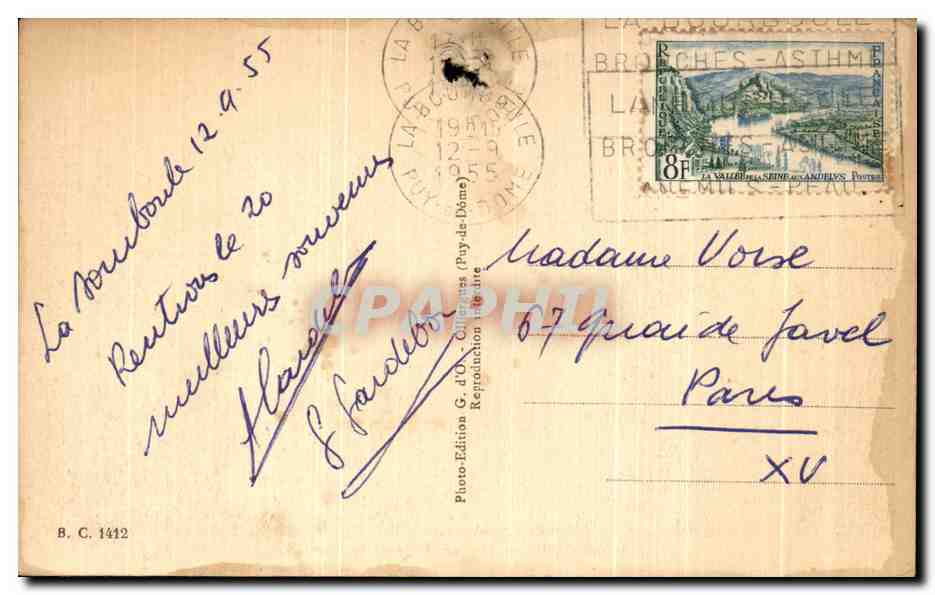 La Bourboule 12.9.55
Rentrons le 20
meilleurs souvenirs
G Gardebon
B. C. 1412
Photo-Edition G. d'O. - Olliergues (Puy-de-Dôme)
Reproduction interdite
LA BOURBOULE
19H15
12-9
1955
PUY-DE-DOME
LA BOURBOULE
BRONCHES-ASTHME
ANEMIES-PEAU
REPUBLIQUE FRANÇAISE
8F
LA VALLÉE DE LA SEINE AUX ANDELYS POSTES
Madame Vorse
67 Quai de Javel
Paris
XV
CPAPHIL